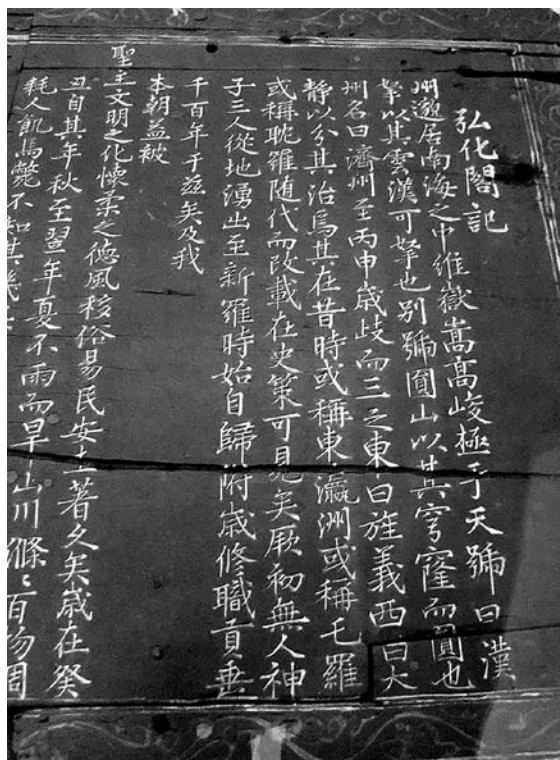 弘化閣記
州邈居南海之中維嶽嵩高峻極于天號曰漢
拏以其雲漢可拏也別號圎山以其穹窿而圓也
州名曰濟州至丙申歲歧而三之東曰旌義西曰大
静以分其治焉其在昔時或稱東瀛洲或稱乇羅
或稱耽羅随代而改載在史策可見矣厥初無人神
子三人從地湧出至新羅時始自歸附歲修職貢垂
千百年于兹矣及我
本朝益被
聖主文明之化懷柔之德風移俗易民安土著久矣歲在癸
丑自其年秋至翌年夏不雨而旱山川滌〻百物凋
耗人飢馬斃不知其幾